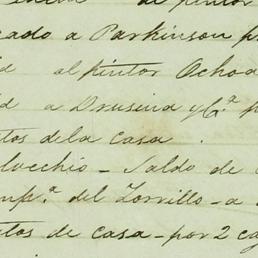 al pintor
cado a Parkinson p
al pintor Ochoa
a Drusina y Cª p
tos de la casa .
Saldo de
mpª. del Zorrillo - a
tos de casa - por 2 ca